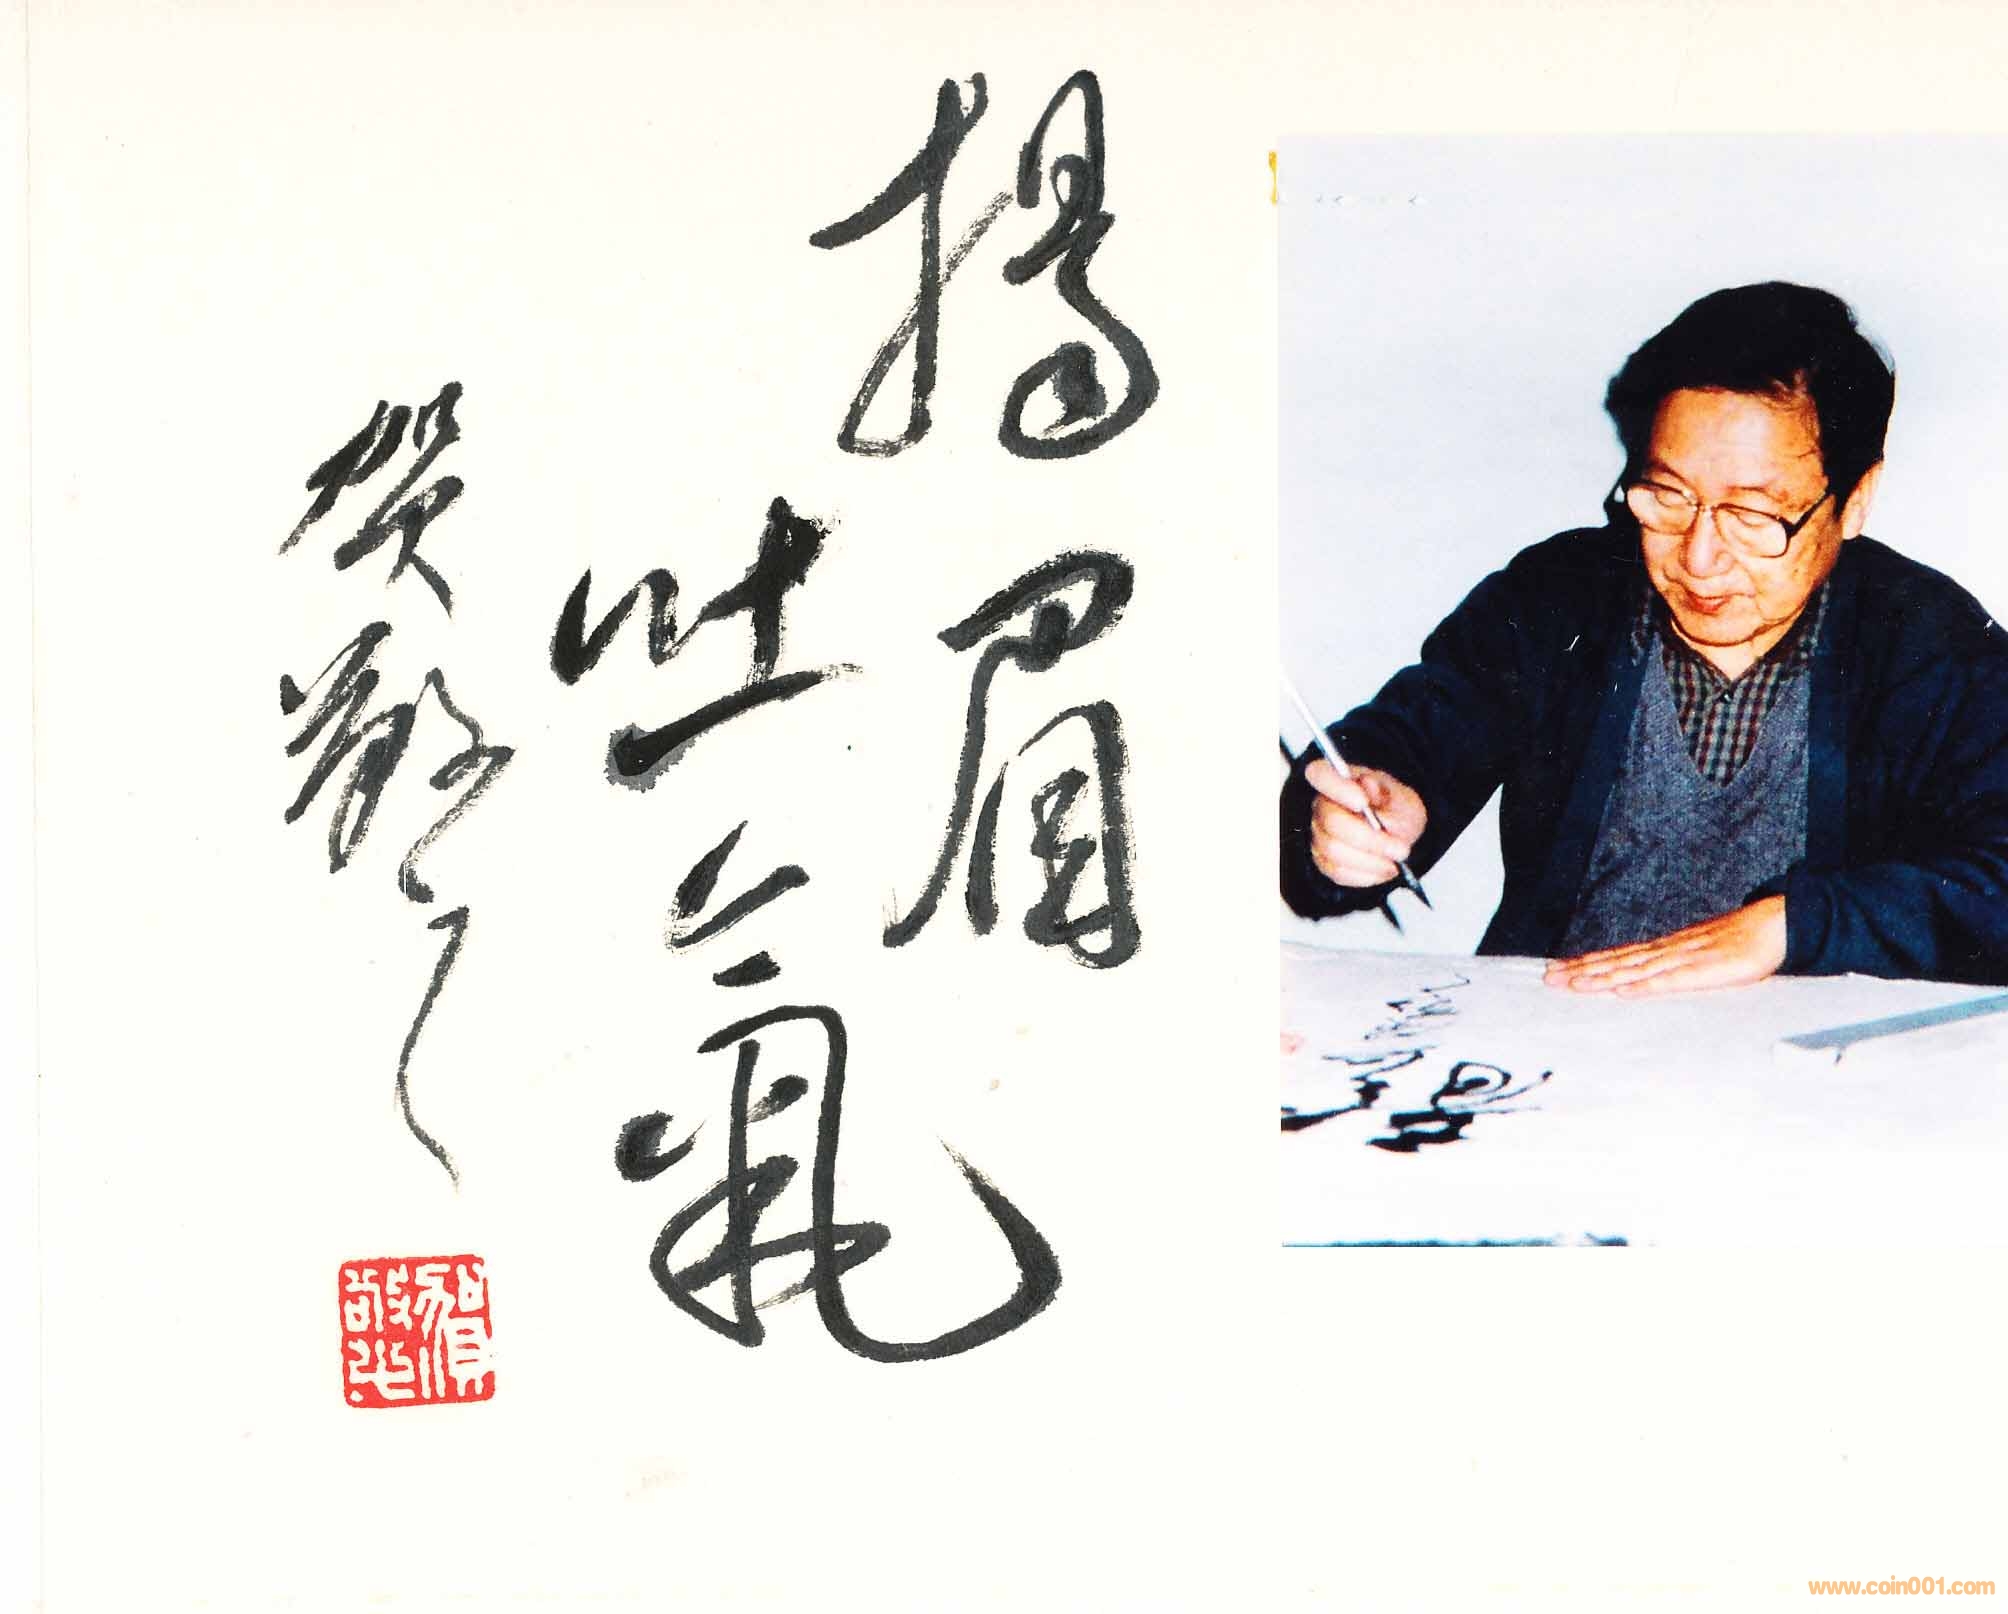 揚眉
吐氣
賀敬之
賀敬之
www.coin001.com